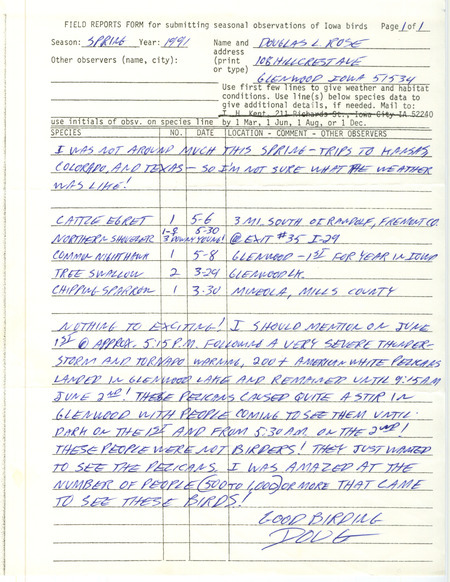 FIELD REPORTS FORM for submitting seasonal observations of Iowa birds Page 1 of 1
Season: SPRING Year: 1991 Name and DOUGLAS L. ROSE
address
Other observers (name, city): (print 108 HILLCREST AVE
or type) GLENWOOD IOWA 51534
Use first few lines to give weather and habitat
conditions. Use line(s) below species data to
give additional details, if needed. Mail to:
T. H. Kent, 211 Richards St., Iowa City IA 52240
use initials of obsv. on species line by 1 Mar, 1 Jun, 1 Aug, or 1 Dec.
SPECIES NO. DATE LOCATION - COMMENT - OTHER OBSERVERS
I WAS NOT AROUND MUCH THIS SPRING - TRIPS TO KANSAS,
COLORADO, AND TEXAS - SO I'M NOT SURE WHAT THE WEATHER
WAS LIKE!
CATTLE EGRET 1 5-6 3 MI. SOUTH OF RANDOLF, FREMONT CO.
NORTHERN SHOVELER 1-♀ 3 DOWNY YOUNG! 5-30 @ EXIT #35 I-29
COMMON NIGHTHAWK 1 5-8 GLENWOOD - 1ST FOR YEAR IN IOWA
TREE SWALLOW 2 3-24 GLENWOOD LK.
CHIPPING SPARROW 1 3-30 MINEOLA, MILLS COUNTY
NOTHING TO EXCITING! I SHOULD MENTION ON JUNE
1ST @ APPROX. 5:15 P.M. FOLLOWING A VERY SEVERE THUNDER
STORM AND TORNADO WARNING, 200+ AMERICAN WHITE PELICANS
LANDED IN GLENWOOD LAKE AND REMAINED UNTIL 9:45 AM
JUNE 2ND! THESE PELICANS CAUSED QUITE A STIR IN
GLENWOOD WITH PEOPLE COMING TO SEE THEM UNTIL
DARK ON THE 1ST AND FROM 5:30 A.M. ON THE 2ND!
THESE PEOPLE WERE NOT BIRDERS! THEY JUST WANTED
TO SEE THE PELICANS. I WAS AMAZED AT THE
NUMBER OF PEOPLE (500 TO 1,000) OR MORE THAT CAME
TO SEE THESE BIRDS!
GOOD BIRDING
DOUG